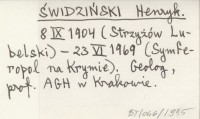 ŚWIDZIŃSKI Henryk.
8 IX 1904 (Strzyżów Lu-
belski) – 23 VI 1969 (Symfe-
ropol na Krymie). Geolog,
prof. AGH w Krakowie.
BJ/066/1995